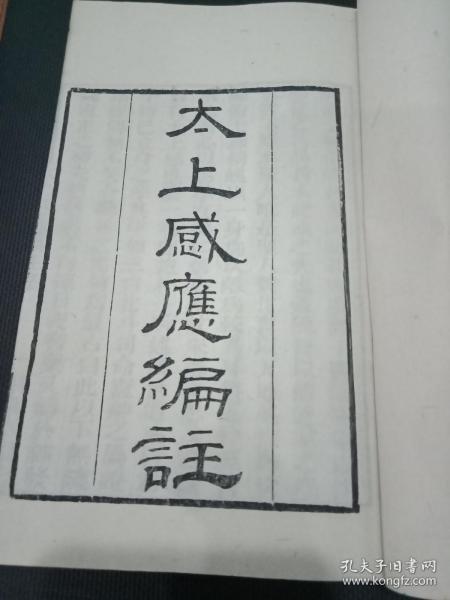 太上感應編註
孔夫子旧书网
www.kongfz.com